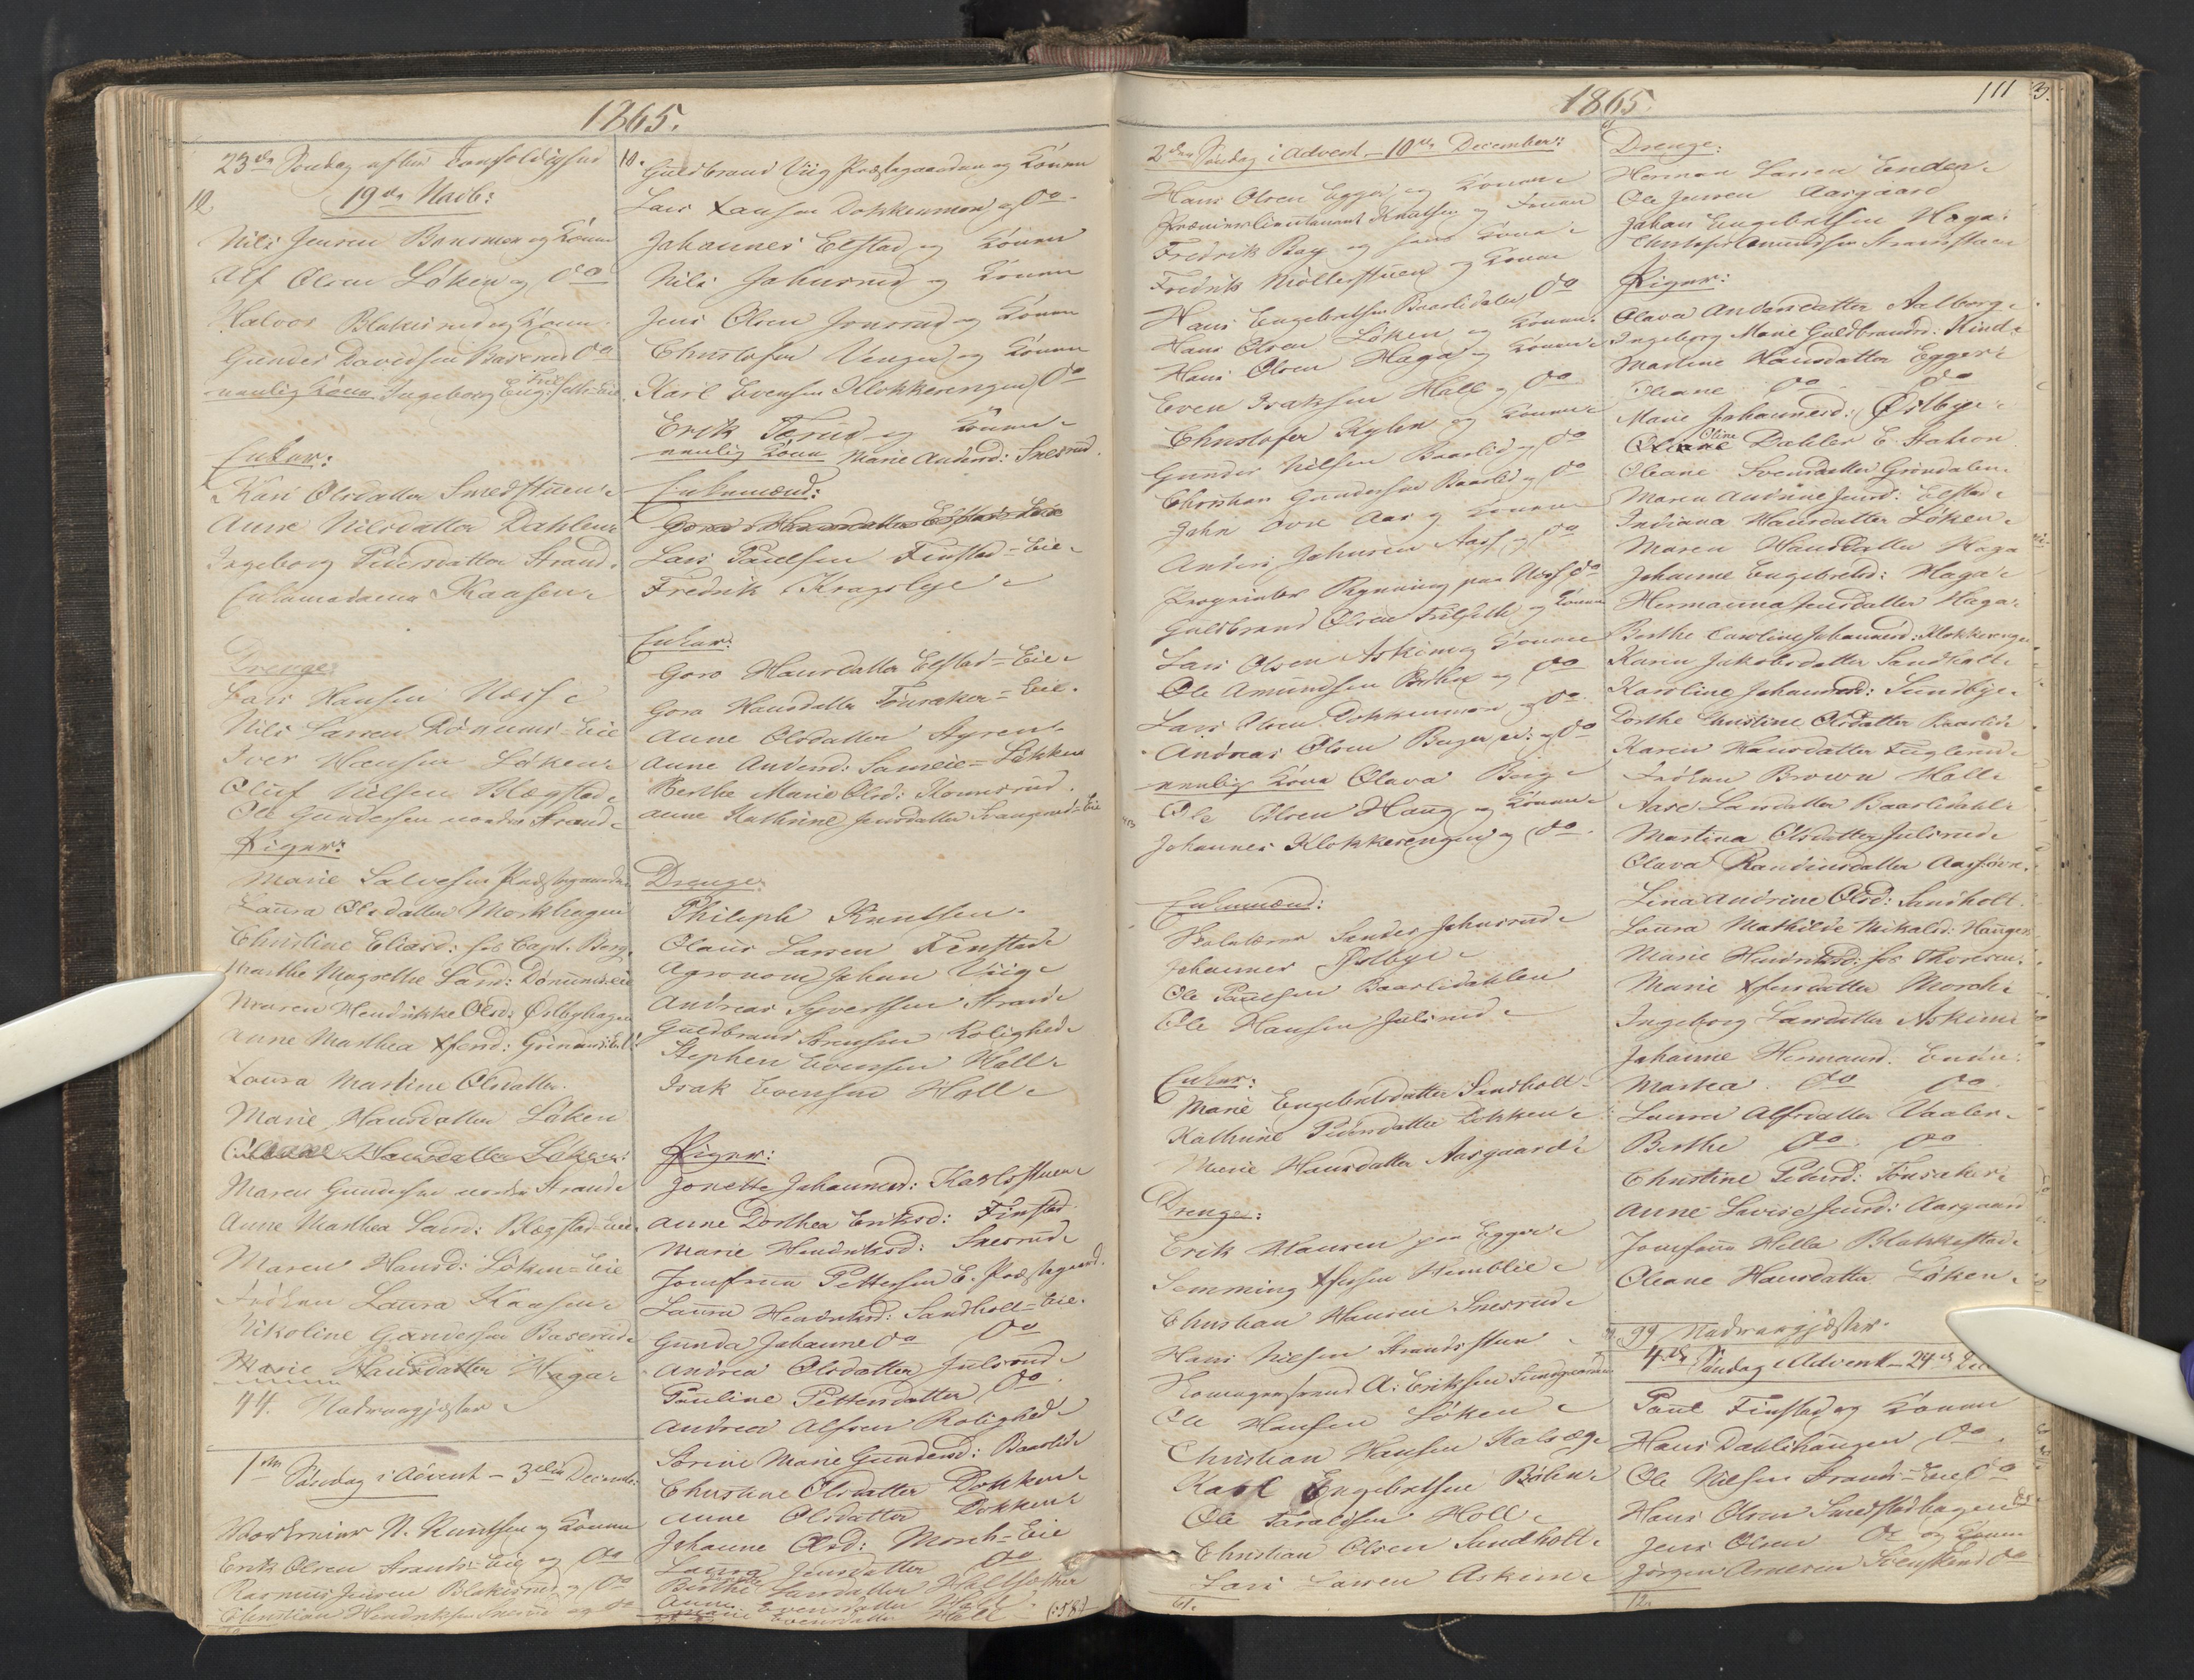 1865.
23de Søndag efter
12 19de Novb:
Nils Jensen Bonsmoen og Konen
Alf Olsen Løken og Do
Halvor Blakisrud og Konen
Gunder Davidsen Baserud Do
nemlig Kone Ingeborg
Enker:
Kari Olsdatter Smedstuen
Anne Nilsdatter Dahlen
Ingeborg Pedersdatter Strand
Enkemadame Kaasen
Drenge:
Lars Hansen Næss
Nils Larsen Dønnums-Eie
Iver Hansen Løken
Oluf Nilsen Blegstad
Ole Gundersen nordre Strand
Piger:
Marie Salvesen Præstegaarden
Laura Olsdatter Morkhagen
Christine Eliasd: hos Capt. Berg
Marthe Magrethe Larsd: Dønnums Eie
Maren Hendrikke Olsd: Østbyhagen
Anne Marthea
Laura Martine Olsdatter
Marie Hansdatter Løken
Oleane Hansdatter Løken
Maren Gundersen nordre Strand
Anne Marthea Larsd: Blegstad-Eie
Maren Hansd: Løken-Eie
Frøken Laura Kaasen
Nikoline Gundersen Baserud
Marie Hansdatter Haga
44. Nadvergjæster
1ste Søndag i Advent - 3die December
N. Knutsen og Konen
Erik Olsen Strands-Eie og Do
Rasmus Jensen Blakisrud og Do
Christian Hendriksen Snesrud og Do
10.
Guldbrand Viig Præstegaarden og Konen
Lars Larsen Dokkenmoen og Do
Johannes Elstad og Konen
Nils Johnsrud og Konen
Jens Olsen Jonsrud og Konen
Christofer Venger og Konen
Karl Evensen Klokkerengen Do
Erik Terud og Konen
nemlig Kone Marie Andersd: Snesrud
Enkemænd:
Goro Hansdatter Elstad-Eie
Lars Paulsen Finstad-Eie
Fredrik Kragsleje
Enker:
Goro Hansdatter Elstad-Eie
Goro Hansdatter Tønsaker-Eie
Anne Olsdatter Styren
Anne Andersd: Sameie-Løkken
Berthe Marie Olsd: Konnerud
Anne Kathrine Jensdatter
Drenge
Philiph Knutsen
Olaus Larsen Finstad
Agronom Johan Viig
Andreas Syvertsen Strand
Guldbrand Sørensen Rolighed
Stephen Evensen Hall
Isak Evensen Hall
Piger:
Jonette Johannesd: Karlsstuen
Anne Dorthea Eriksd: Finstad
Marie Hendriksd: Snesrud
Jomfru Pettersen E. Præstegaard
Laura Hendriksd: Sandholt-Eie
Gunda Johanne Do Do
Andrea Olsdatter Julsrud
Pauline Pettersdatter Do
Andrea Alfsen Rolighed
Sørine Marie Gundersd: Baarlid
Christine Olsdatter Dokken
Anne Olsdatter Dokken
Johanne Olsd: Morch-Eie
Laura Jensdatter Do
Berthe Larsdatter
Anne Evensdatter Hall
Marie Evensdatter Hall
1865.
111
2den Søndag i Advent - 10de December:
Hans Olsen Egger og Konen
Premierlieutenant Knutsen og Fruen
Fredrik Bay og hans Kone
Fredrik Møllerstuen og Konen
Hans Engebretsen Baarlidalen Do
Hans Olsen Løken og Konen
Hans Olsen Haga og Konen
Even Isaksen Hall og Do
Christofer Rylen og Konen
Gunder Nilsen Baarlid og Do
Christian Gundersen Baarlid og Do
John Øvre Aas og Konen
Anders Johnsen Aas og Do
Proprietær Rynning paa Næss Do
Guldbrand Olsen Fulsеth og Konen
Lars Olsen Askim og Konen
Ole Amundsen og Do
Lars Olsen Dokkenmoen og Do
Andreas Olsen Berger og Do
nemlig Kone Olava Berg
Ole Olsen Haug og Konen
Johannes Klokkerengen og Do
Enkemænd:
Skolelærer Sander Johnsrud
Johannes Østbye
Ole Paulsen Baarlidahlen
Ole Hansen Julsrud
Enker:
Marie Engebretsdatter Sandholt
Kathrine Pedersdatter Løkken
Marie Hansdatter Aasgaard
Drenge:
Erik Hansen paa Egger
Semming Hemblie
Christian Hansen Snesrud
Hans Nilsen Strandsstuen
A: Eriksen
Ole Hansen Løken
Christian Hansen
Karl Engebretsen Bølen
Ole Haraldsen Holl
Christian Olsen Sandholt
Lars Larsen Askim
61.
Drenge:
Herman Larsen Enden
Ole Jensen Aasgaard
Johan Engebretsen Haga
Christofer Amundsen
Piger:
Olava Andersdatter Aalborg
Ingeborg Marie Guldbrandsd: Rind
Martine Hansdatter Egger
Oleane Do Do
Marie Johannesd: Østbye
Oline Dahler E. Station
Oleane Svendsdatter Grøndalen
Maren Andrine Jensd: Elstad
Indiana Hansdatter Løken
Maren Hansdatter Haga
Johanne Engebretsd: Haga
Hermanna Jensdatter Haga
Berthe Caroline Johannesd: Klokkerengen
Karen Jakobsdatter Sandholt
Karoline Johannesd: Sundbye
Dorthe Christine Olsdatter Baarlid
Karen Hansdatter Fuglerud
Frøken Brown Hall
Aase Larsdatter Baarlidahl
Martina Olsdatter Julsrud
Olava
Lina Andrine Olsd: Sandholt
Laura Mathilde Nikolaid: Haugen
Marie Hendriksd: hos Thoresen
Marie Morch
Ingeborg Larsdatter Askim
Johanne Hermansd. Enden
Martea Do Do
Laura Alfsdatter Vaaler
Berthe Do Do
Christine Pedersd: Tønsaker
Anne Lovise Jensd: Aasgaard
Jomfru Hella Blakkestad
Oleane Hansdatter Løken
99 Nadvergjæster
4de Søndag i Advent - 24de
Paul Finstad og Konen
Hans Dahlshaugen Do
Ole Nilsen Strands-Eie Do
Hans Olsen Smedstadhagen Do
Jens Olsen Do og Konen
Jørgen Arnesen Svenskerud Do
12.